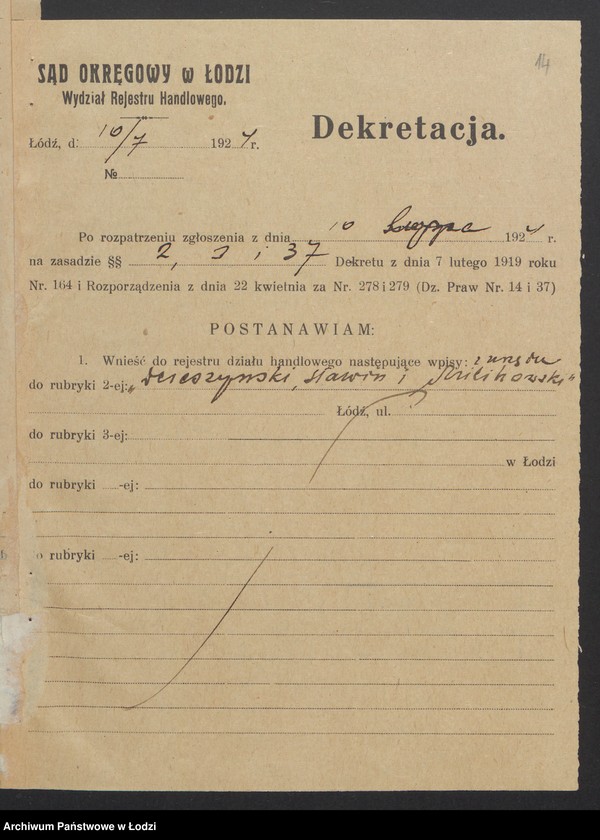 14
SĄD OKRĘGOWY w ŁODZI
Wydział Rejestru Handlowego.
Dekretacja.
Łódź, d. 10/7 1924 r.
№
Po rozpatrzeniu zgłoszenia z dnia 10 1924 r.
na zasadzie §§ 2, i 37 Dekretu z dnia 7 lutego 1919 roku
Nr. 164 i Rozporządzenia z dnia 22 kwietnia za Nr. 278 i 279 (Dz. Praw Nr. 14 i 37)
POSTANAWIAM:
1. Wnieść do rejestru działu handlowego następujące wpisy: z urzędu
do rubryki 2-ej: „ i "
Łódź, ul.
do rubryki 3-ej:
w Łodzi
do rubryki -ej:
o rubryki -ej:
Archiwum Państwowe w Łodzi